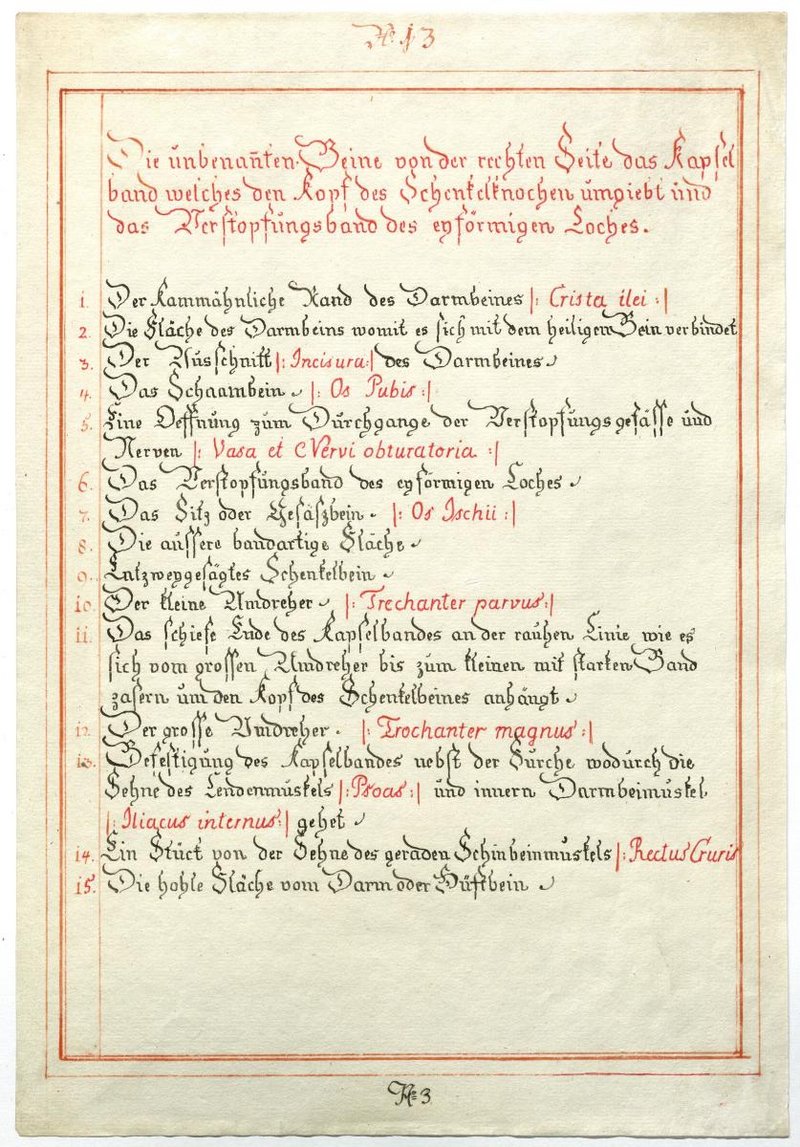 № 13
Die unbenan̄ten Beine von der rechten Seite das Kapsel
band welches den Kopf des Schenkelknochen umgiebt und
das Verstopfungsband des eyförmigen Loches.
1. Der kammähnliche Rand des Darmbeines |: Crista ilei :|
2. Die Fläche des Darmbeins womit es sich mit dem heiligen Bein verbindet
3. Der Ausschnitt |: Incisura :| des Darmbeines
4. Das Schaambein |: Os Pubis :|
5. Eine Oeffnung zum Durchgange der Verstopfungsgefässe und
Nerven |: Vasa et Nervi obturatoria :|
6. Das Verstopfungsband des eyförmigen Loches
7. Das Sitz oder Gesäszbein |: Os Ischii :|
8. Die äussere bandartige Fläche
9. Entzweygesägtes Schenkelbein
10. Der kleine Umdreher |: Trechanter parvus :|
11. Das schiefe Ende des Kapselbandes an der rauhen Linie wie es
sich vom grossen Umdreher bis zum kleinen mit starken Band
zasern um den Kopf des Schenkelbeines anhängt
12. Der grosse Umdreher |: Trochanter magnus :|
13. Befestigung des Kapselbandes nebst der Furche wodurch die
Sehne des Lendenmuskels |: Psoas :| und innern Darmbeimuskel
|: Iliacus internus :| gehet
14. Ein Stück von der Sehne des geraden Schinbeinmuskels |: Rectus Cruris
15. Die hohle Fläche vom Darm oder Hüftbein
№ 3